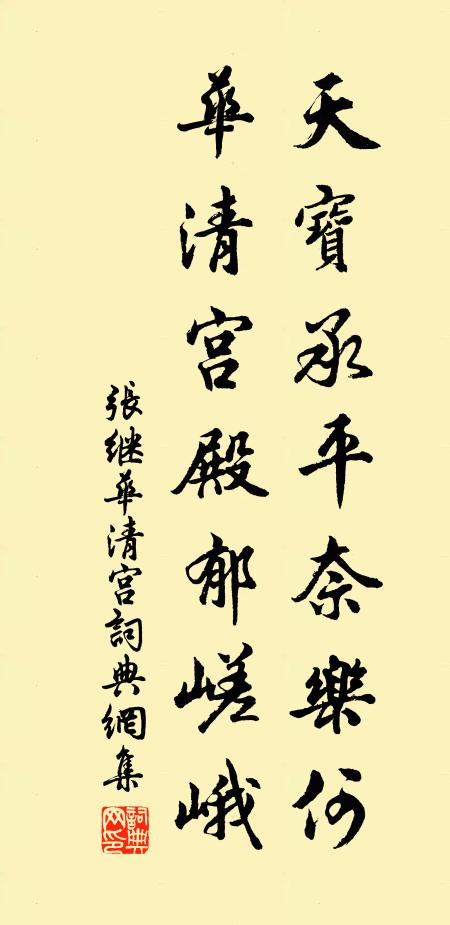 天寶承平奈樂何
華清宮殿郁嵯峨
張继華清宮詞典網集
詞典
网印